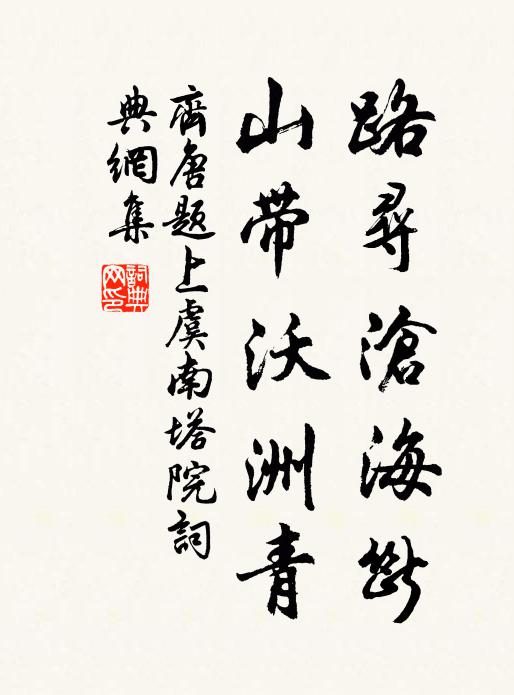 路尋滄海斷
山帶沃洲青
齊唐題上虞南塔院詞
典網集
詞典網印